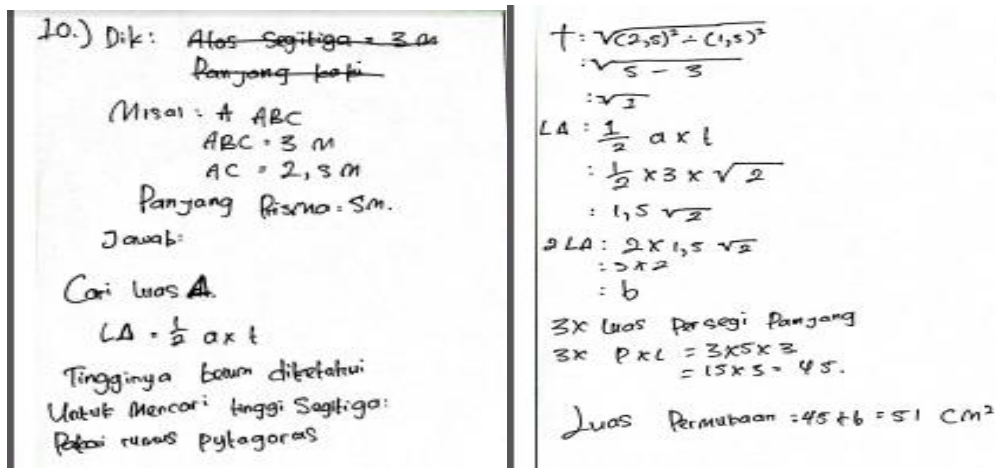 10.) Dik: Alas Segitiga = 3 m
Panjang kaki
Misal : Δ ABC
ABC = 3 m
AC = 2,5 m
Panjang Prisma = 5m.
Jawab:
Cari luas Δ.
LΔ = 1/2 a x t
Tingginya belum diketahui
Untuk Mencari tinggi Segitiga:
Pakai rumus pytagoras
t : √(2,5)² - (1,5)²
: √5 - 3
: √2
LΔ : 1/2 a x t
: 1/2 x 3 x √2
: 1,5 √2
2 LΔ : 2 x 1,5 √2
: 3 x 2
: 6
3x Luas Persegi Panjang
3x P x L = 3x5x3
= 15 x 3 = 45.
Luas Permukaan = 45 + 6 = 51 cm²